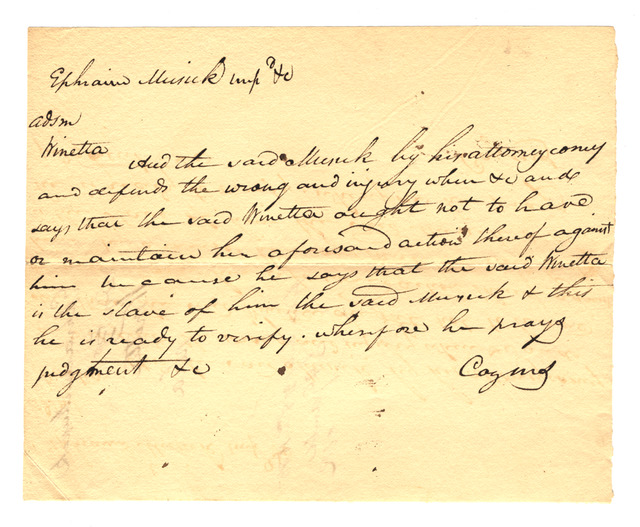 Ephraim Musick imp^d &c
adsm
Winetta And the said Musick by his attorney comes
and defends the wrong and injury when &c and
says that the said Winetta ought not to have
or maintain her aforesaid action thereof against
him because he says that the said Winetta
is the slave of him the said Musick & this
he is ready to verify. wherefore he prays
judgment &c